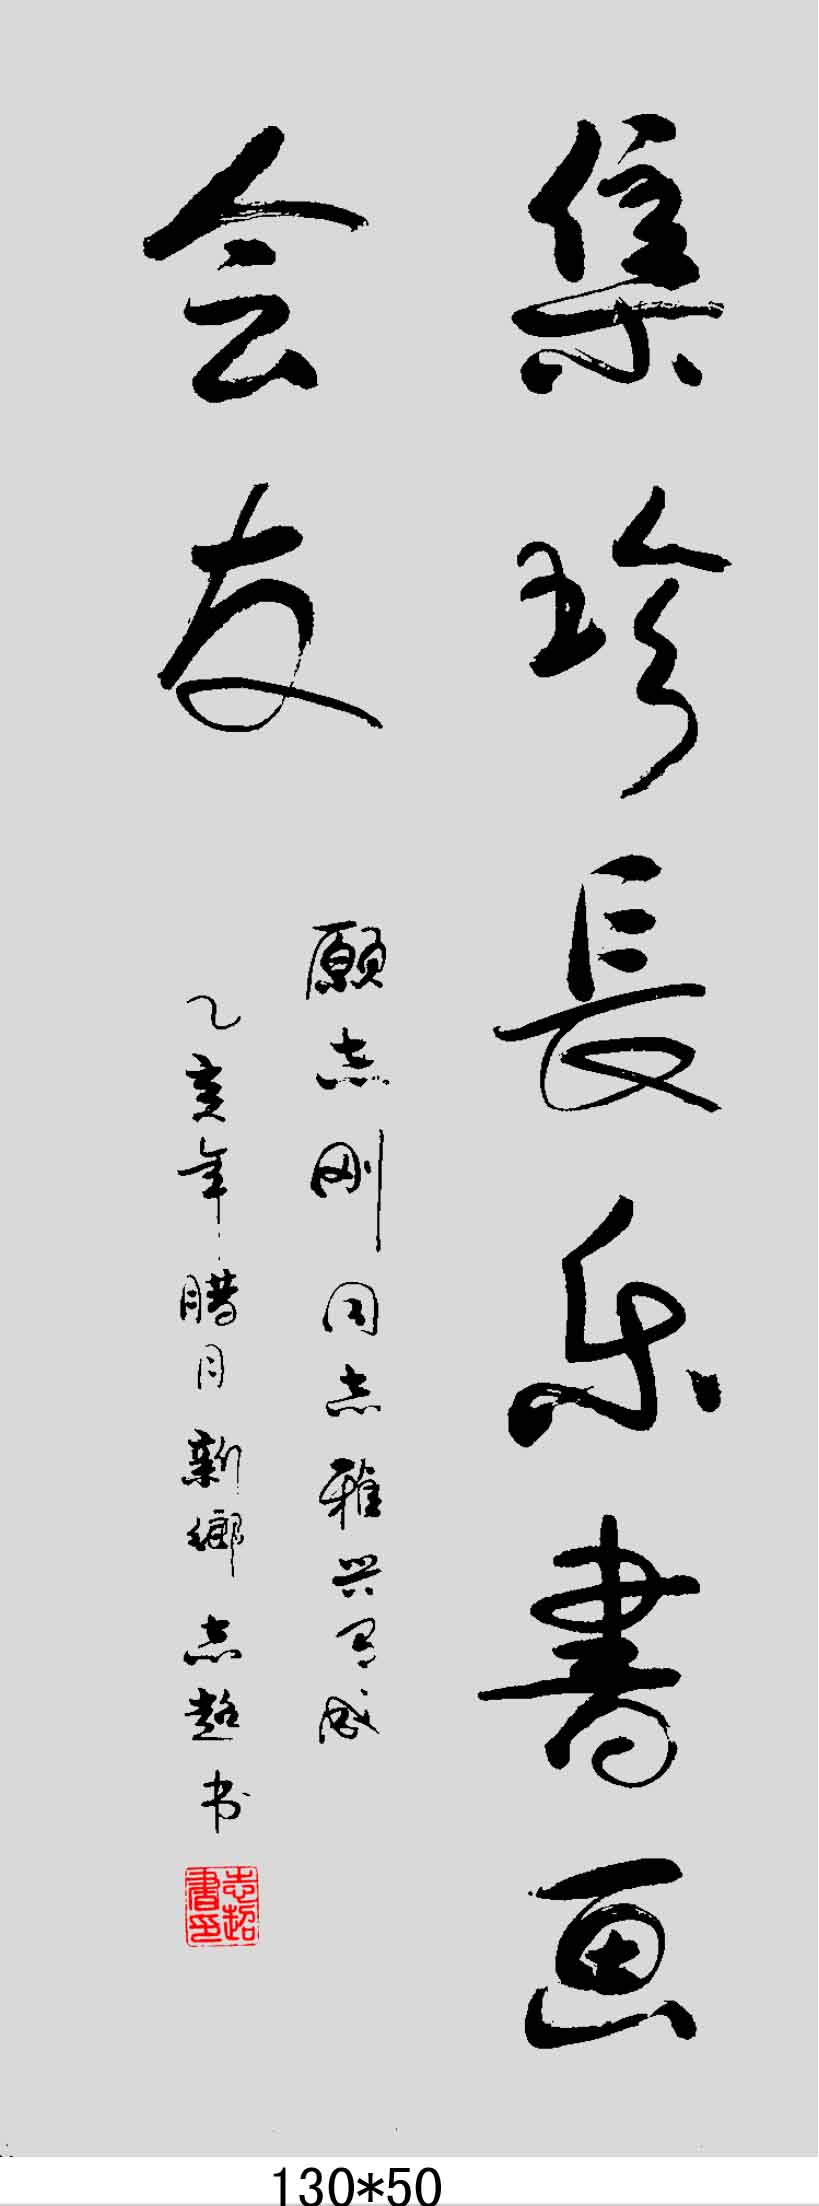 集珍長乐書画
会友
願志刚同志雅兴有成
乙亥年腊月新鄉志超书
志超書印
130*50